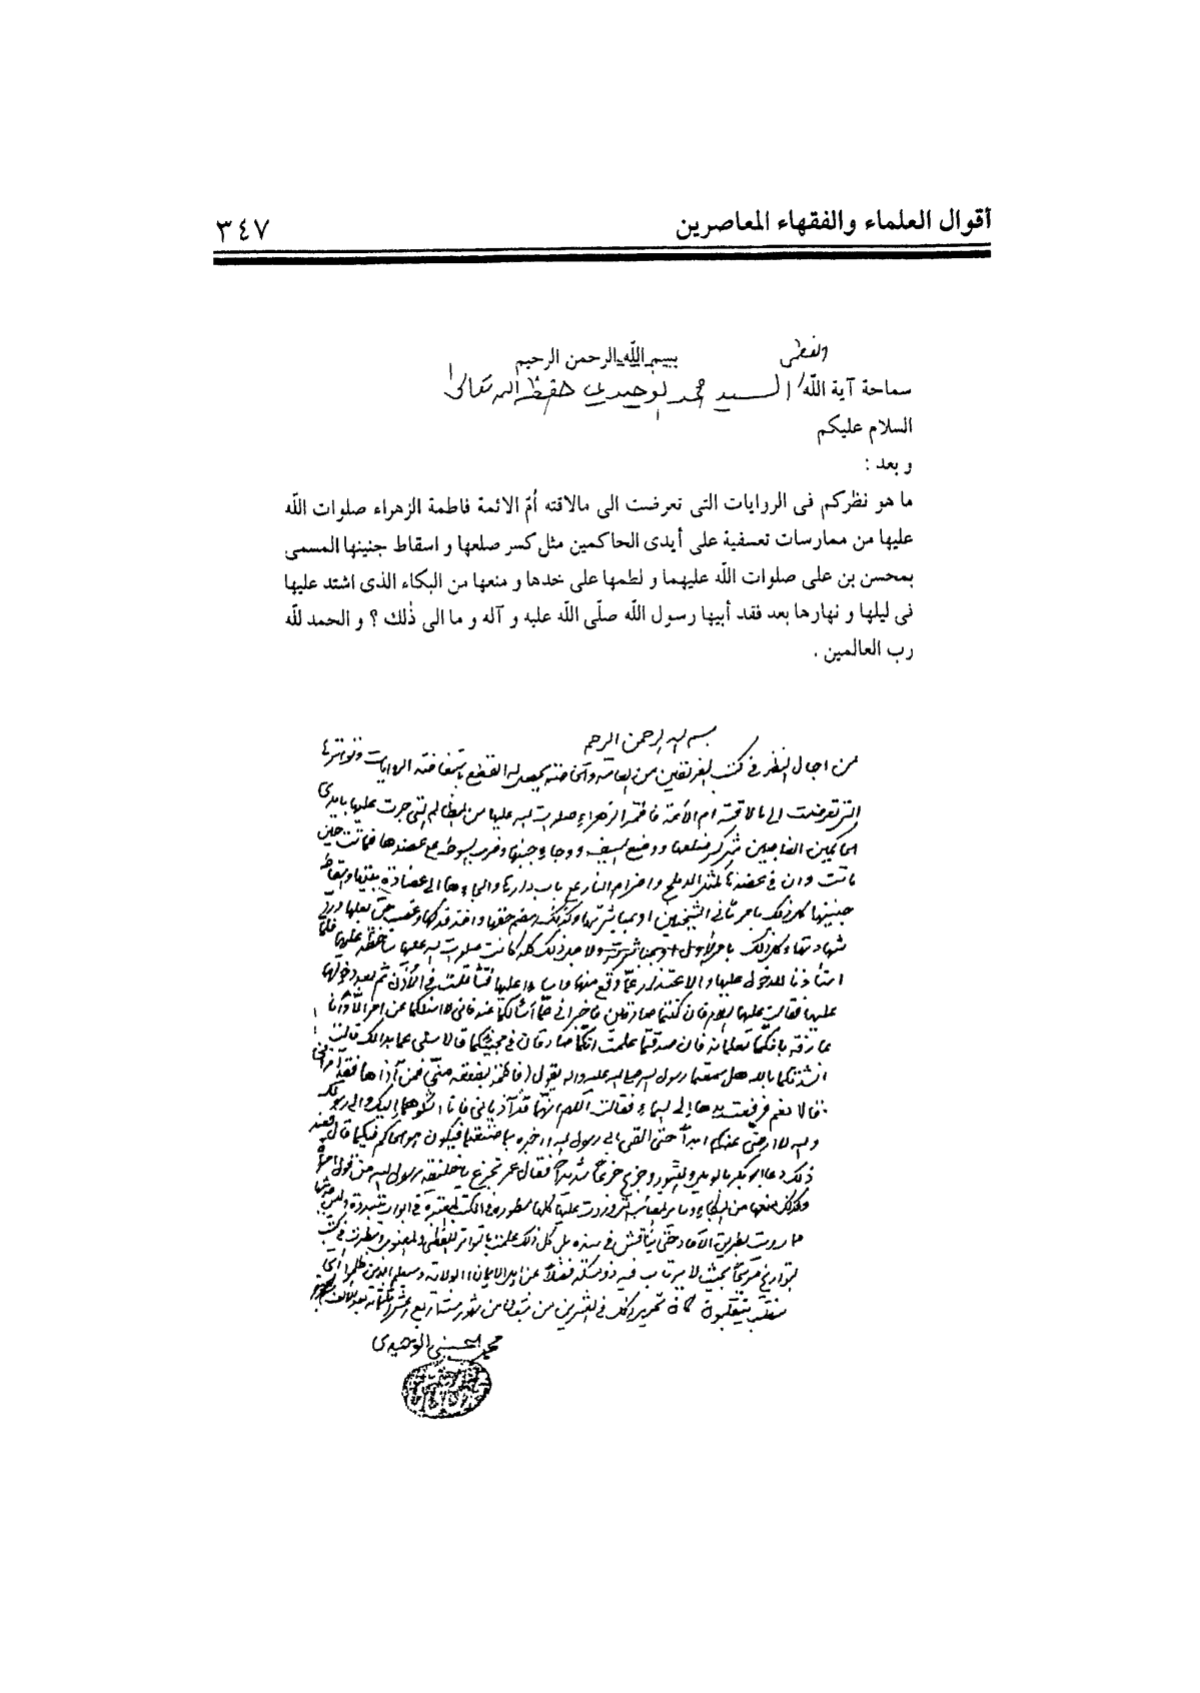 أقوال العلماء والفقهاء المعاصرين ٣٤٧
بسم اللّه الرحمن الرحيم
العظمى
سماحة آية اللّه السيد محمد الوحيدي حفظه الله تعالى
السلام عليكم
و بعد :
ما هو نظركم فى الروايات التى تعرضت الى مالاقته اُمّ الائمة فاطمة الزهراء صلوات اللّه
عليها من ممارسات تعسفية على أيدى الحاكمين مثل كسر صلعها و اسقاط جنينها المسمى
بمحسن بن على صلوات اللّه عليهما و لطمها على خدها و منعها من البكاء الذى اشتد عليها
فى ليلها و نهارها بعد فقد أبيها رسول اللّه صلّى اللّه عليه و آله و ما الى ذٰلك ؟ و الحمد للّه
رب العالمين .
بسم الله الرحمن الرحيم
من اجال النظر في كتب الفريقين من العامة والخاصة يحصل له القطع باستفاضة الروايات وتواترها
التي تعرضت الى مالاقته ام الأئمة فاطمة الزهراء صلوات الله عليها من المظالم التي جرت عليها بايدى
الحاكمين الغاصبين مثل كسر ضلعها ووضع السيف ووجاء جنبها وضرب السوط على عضدها فماتت حين
ماتت وان في عضدها كمثل الدملج واضرام النار على باب دارها والجاءها الى عضادة بيتها واسقاط
جنينها كل ذلك بامر ثاني الشيخين او بمباشرتها وكذلك هضم حقها واخذ فدكها وغصب حق بعلها ورد
شهادتها وكل ذلك بامر الاول وبعد ذلك كله كانت صلوات الله عليها ساخطة عليهما فلما
استأذنا للدخول عليها والاعتذار عما وقع منهما واساءا عليها فتثاقلت في الأذن ثم بعد دخولهما
عليها فقالت عليها السلام فان كنتما صادقين فاخبراني عما أسألكما عنه فاني لا اسئلكما عن امر الا وأنا
عارفة بانكما تعلمانه فان صدقتما علمت انكما صادقان في مجيئكما قالا سلي عما بدا لك قالت
انشدتكما بالله هل سمعتما رسول الله صلى الله عليه وآله يقول (فاطمة بضعة مني فمن آذاها فقد آذاني
قالا نعم فرفعت يدها إلى السماء فقالت اللهم انهما قد آذياني فانا اشكوهما إليك والى رسولك
والله لا ارضى عنكما ابداً حتى القى ابي رسول الله واخبره بما صنعتما فيكون هو الحاكم فيكما قال فعند
ذلك دعا ابو بكر بالويل والثبور وجزع جزعاً شديداً فقال عمر تجزع يا خليفة رسول الله من قول امرأة
وكذلك منعها من البكاء وسائر المصائب التي وردت عليها كلها مسطورة في الكتب المعتبرة في ابواب متبددة وليس منها
ما رويت بطريق الآحاد حتى يناقش في سنده بل كل ذلك علمت بالتواتر اللفظي والمعنوي وسطرت في كتب
التواريخ بحيث لا يرتاب فيه ذو مسكة فضلاً عن اهل الايمان والولاية وسيعلم الذين ظلموا اي
منقلب ينقلبون كان تحرير ذلك في العشرين من شعبان من شهور سنة اربع عشر واربعمائة بعد الالف من الهجرة
محمد الحسيني الوحيدي